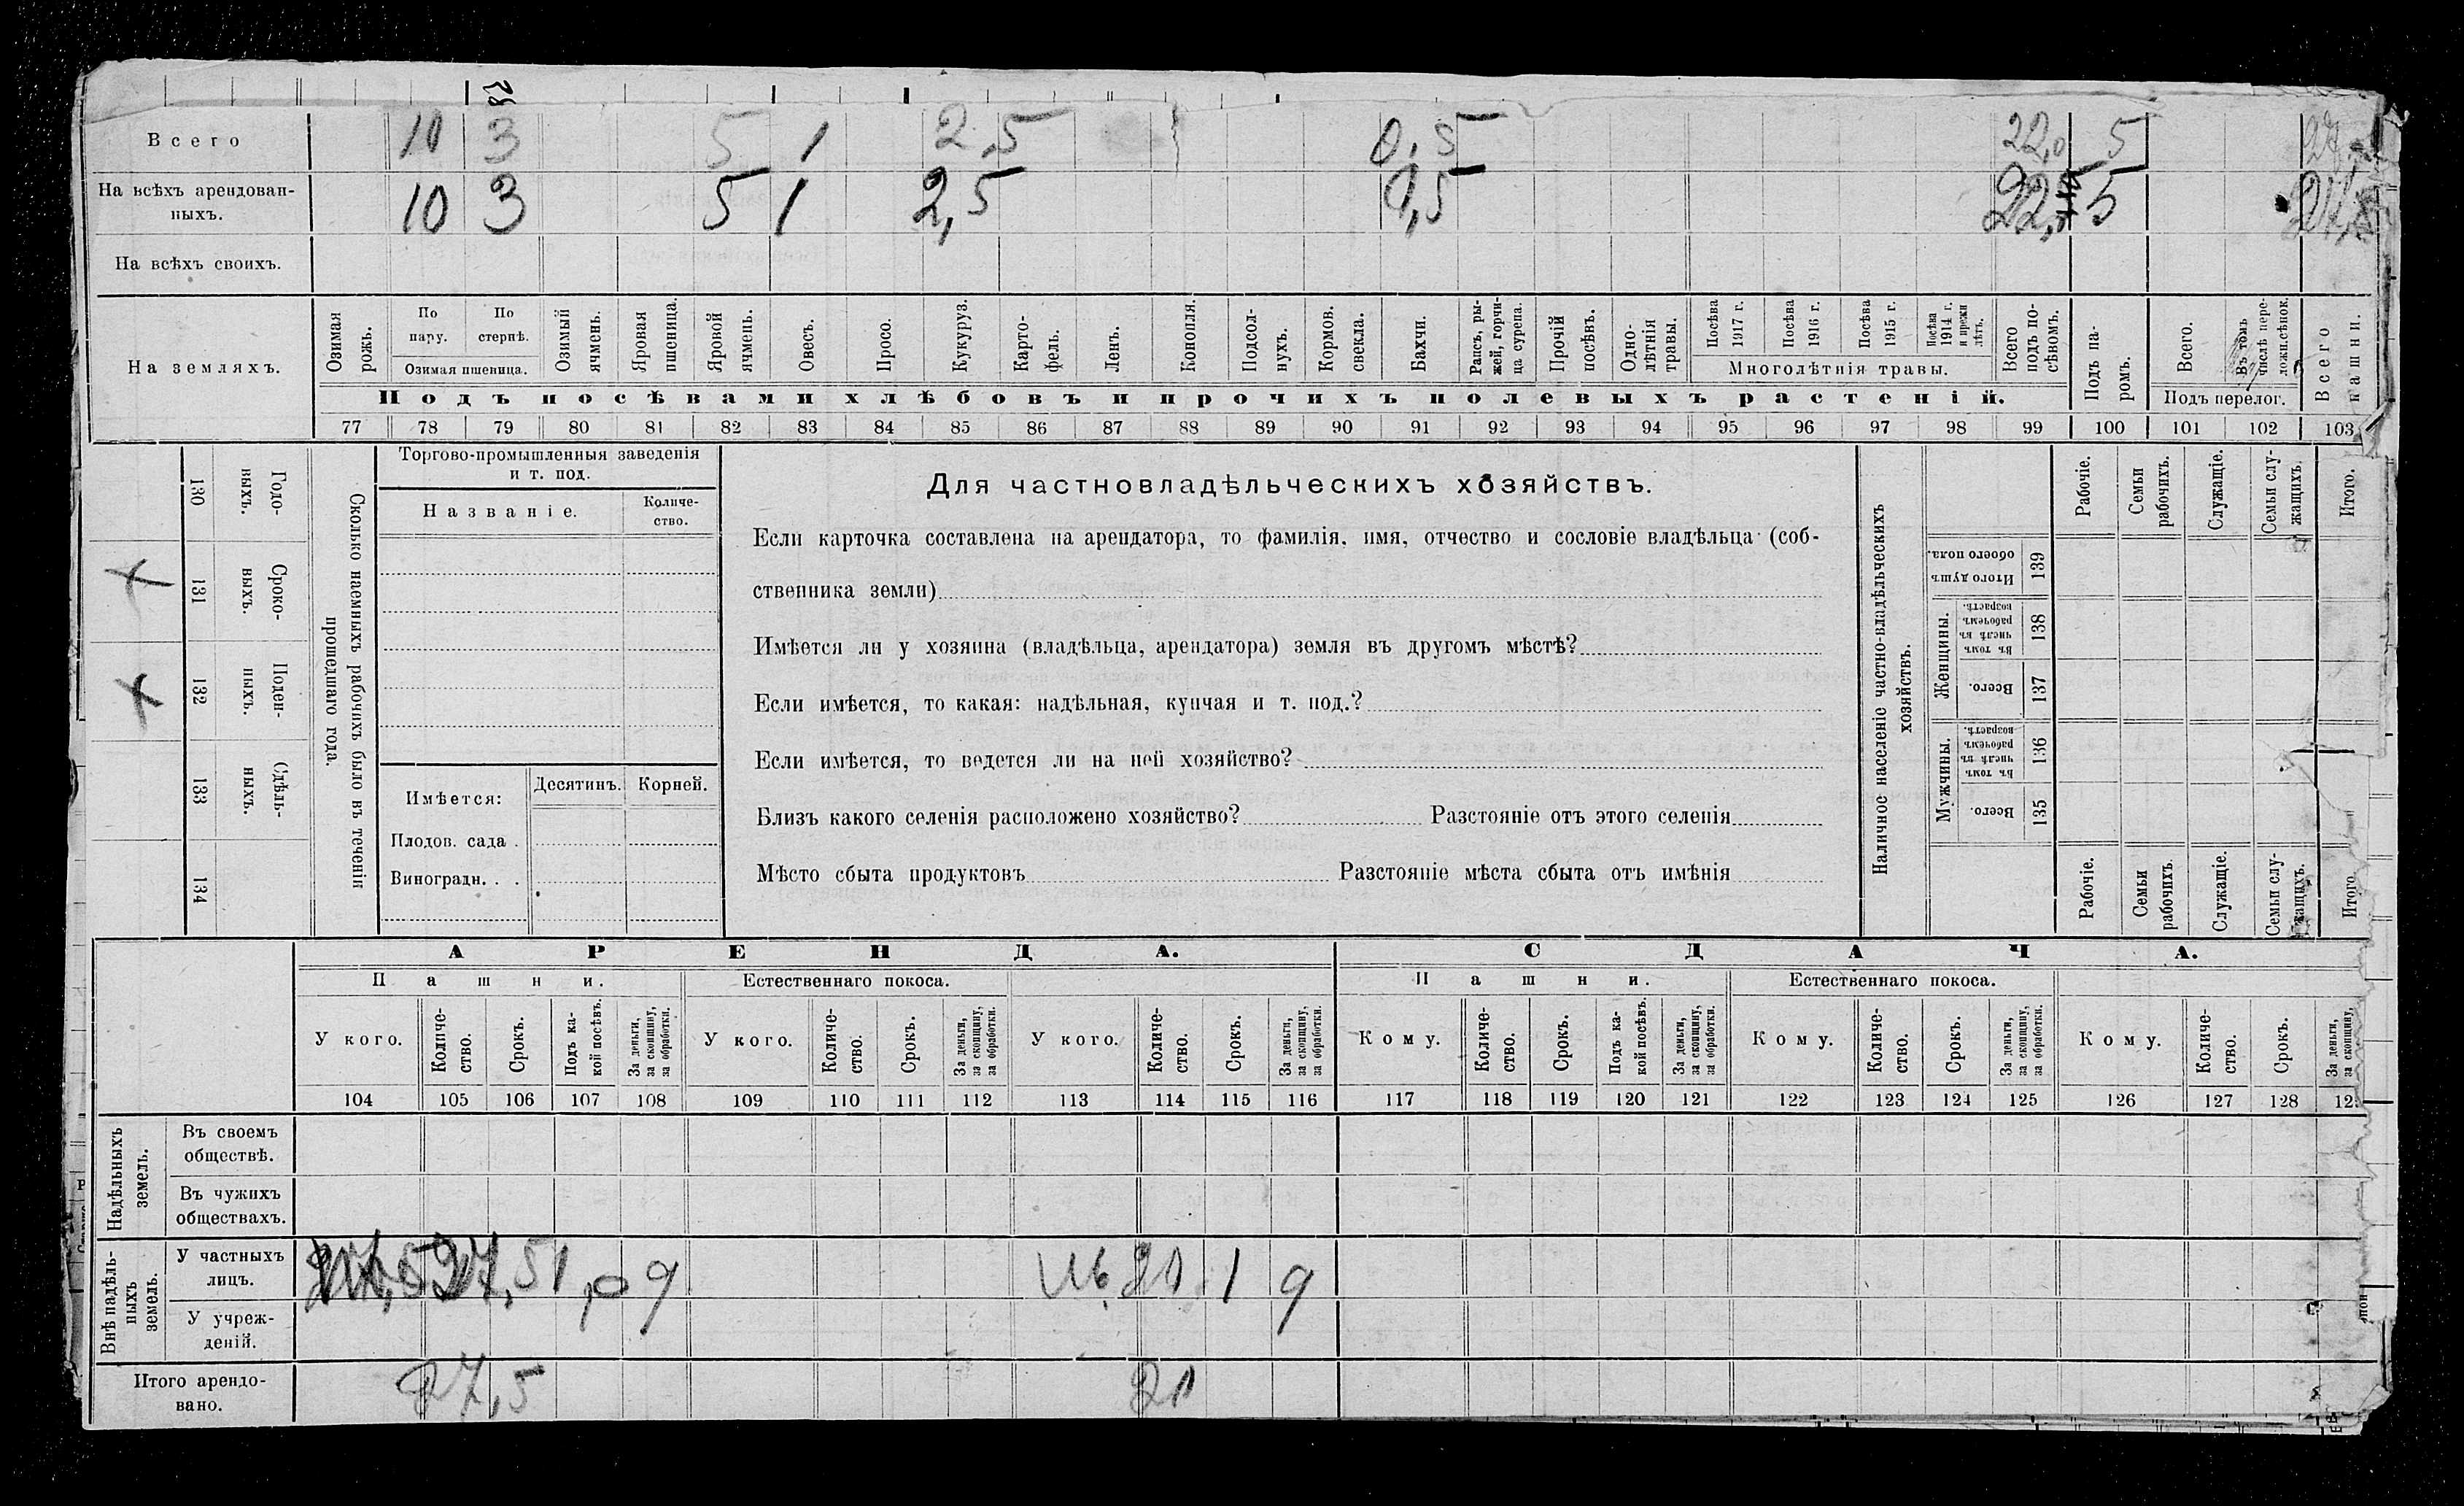 Всего 10 3 5 1 2,5 0,5 22,0 5
На всѣхъ арендован-
ныхъ. 10 3 5 1 2,5 0,5 22,0 5
На всѣхъ своихъ.
На земляхъ.
Озимая рожь.
По пару.
По стернѣ.
Озимая пшеница.
Озимый ячмень.
Яровая пшеница.
Яровой ячмень.
Овесъ.
Просо.
Кукуруз.
Карто-
фель.
Ленъ.
Конопля.
Подсол-
нухъ.
Кормов. свекла.
Бахчи.
Рапсъ, ры-
жей, горчи-
ца сурепа.
Прочій посѣвъ.
Одно-
лѣтнія травы.
Посѣва 1917 г.
Посѣва 1916 г.
Посѣва 1915 г.
Посѣва 1914 г. и прежн лѣтъ.
Многолѣтнія травы.
Всего подъ по-
сѣвомъ.
Подъ посѣвами хлѣбовъ и прочихъ полевыхъ растеній.
Подъ па-
ромъ.
Всего.
Въ томъ числѣ пере-
ложн.сѣнок.
Подъ перелог.
Всего пашни.
77 78 79 80 81 82 83 84 85 86 87 88 89 90 91 92 93 94 95 96 97 98 99 100 101 102 103
Годо-
выхъ.
130
Сроко-
выхъ.
131
Поден-
ныхъ.
132
Сдѣль-
ныхъ.
133
134
Сколько наемныхъ рабочихъ было въ теченіи
прошедшаго года.
Торгово-промышленныя заведенія
и т. под.
Названіе.
Количе-
ство.
Имѣется:
Десятинъ.
Корней.
Плодов. сада .
Виноградн. . .
Для частновладѣльческихъ хозяйствъ.
Если карточка составлена на арендатора, то фамилія, имя, отчество и сословіе владѣльца (соб-
ственника земли)
Имѣется ли у хозяина (владѣльца, арендатора) земля въ другомъ мѣстѣ?
Если имѣется, то какая: надѣльная, купчая и т. под.?
Если имѣется, то ведется ли на ней хозяйство?
Близъ какого селенія расположено хозяйство? Разстояніе отъ этого селенія
Мѣсто сбыта продуктовъ Разстояніе мѣста сбыта отъ имѣнія
Наличное населеніе частно-владѣльческихъ
хозяйствъ.
Рабочіе.
Семьи рабочихъ.
Служащіе.
Семьи слу-
жащихъ.
Итого.
Итого душъ обоего пола.
139
Женщины.
Въ томъ числѣ въ рабочемъ возрастѣ.
138
Всего.
137
Мужчины.
Въ томъ числѣ въ рабочемъ возрастѣ.
136
Всего.
135
Рабочіе.
Семьи рабочихъ.
Служащіе.
Семьи слу-
жащихъ.
Итого
АРЕНДА. СДАЧА.
Пашни. Естественнаго покоса. Пашни. Естественнаго покоса.
У кого.
Количе-
ство.
Срокъ.
Подъ ка-
кой посѣвъ.
За деньги, за скопщину, за обработки.
У кого.
Количе-
ство.
Срокъ.
За деньги, за скопщину, за обработки.
У кого.
Количе-
ство.
Срокъ.
За деньги, за скопщину, за обработки.
Кому.
Количе-
ство.
Срокъ.
Подъ ка-
кой посѣвъ.
За деньги, за скопщину, за обработки.
Кому.
Количе-
ство.
Срокъ.
За деньги, за скопщину, за обработки.
Кому.
Количе-
ство.
Срокъ.
За деньги, за скопщину,
104 105 106 107 108 109 110 111 112 113 114 115 116 117 118 119 120 121 122 123 124 125 126 127 128 12
Надѣльныхъ земель.
Въ своемъ
обществѣ.
Въ чужихъ
обществахъ.
Внѣ надѣль-
ныхъ земель.
У частныхъ
лицъ. 27,5 1 9 1 9
У учреж-
деній.
Итого арендо-
вано. 27,5